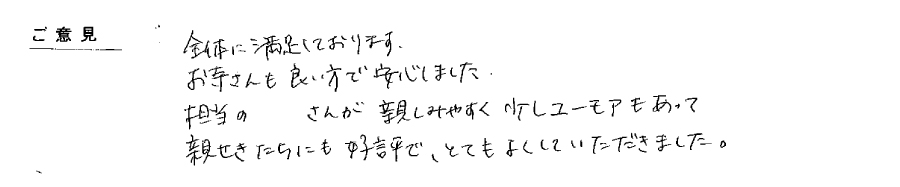 ご意見
全体に満足しております.
お寺さんも良い方で安心しました.
担当の さんが 親しみやすく 少しユーモアもあって
親せきたちにも 好評で、とてもよくしていただきました。